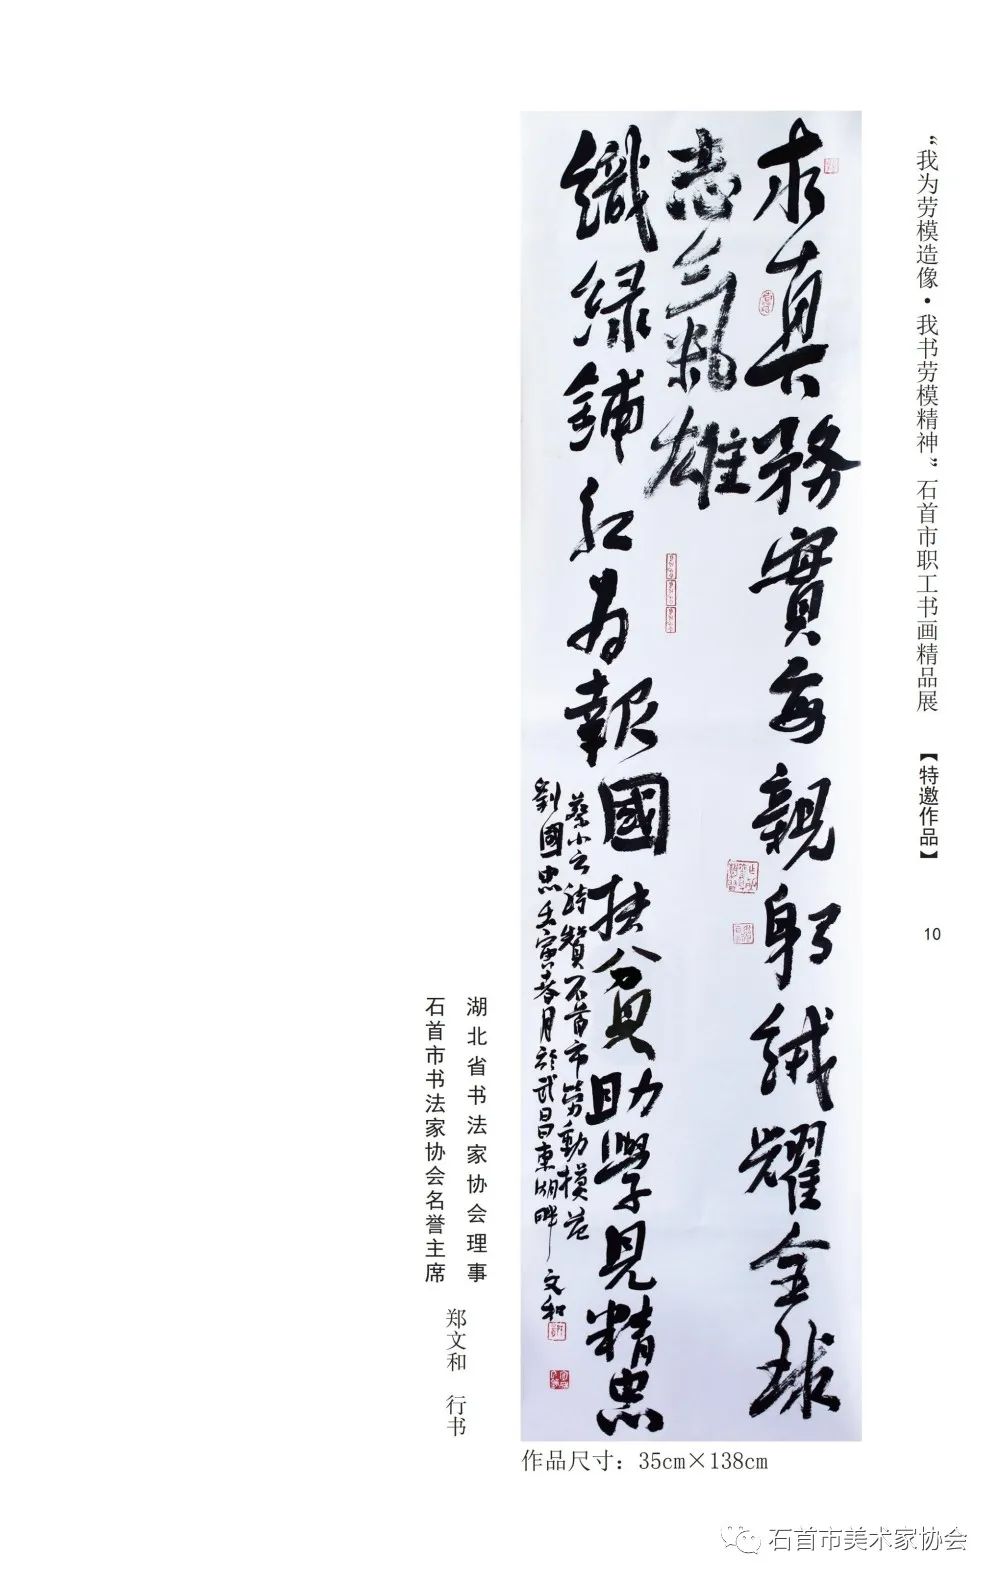 “我为劳模造像·我书劳模精神”石首市职工书画精品展 【特邀作品】
10
求真務實每親躬絨耀全球
志氣雄
織緑鋪紅为報國扶貧助學見精忠
蔡小云詩贊石首市劳動模范
劉國忠壬寅春月於武昌東湖畔 文和
湖北省书法家协会理事
石首市书法家协会名誉主席
郑文和 行书
作品尺寸：35cm×138cm
石首市美术家协会